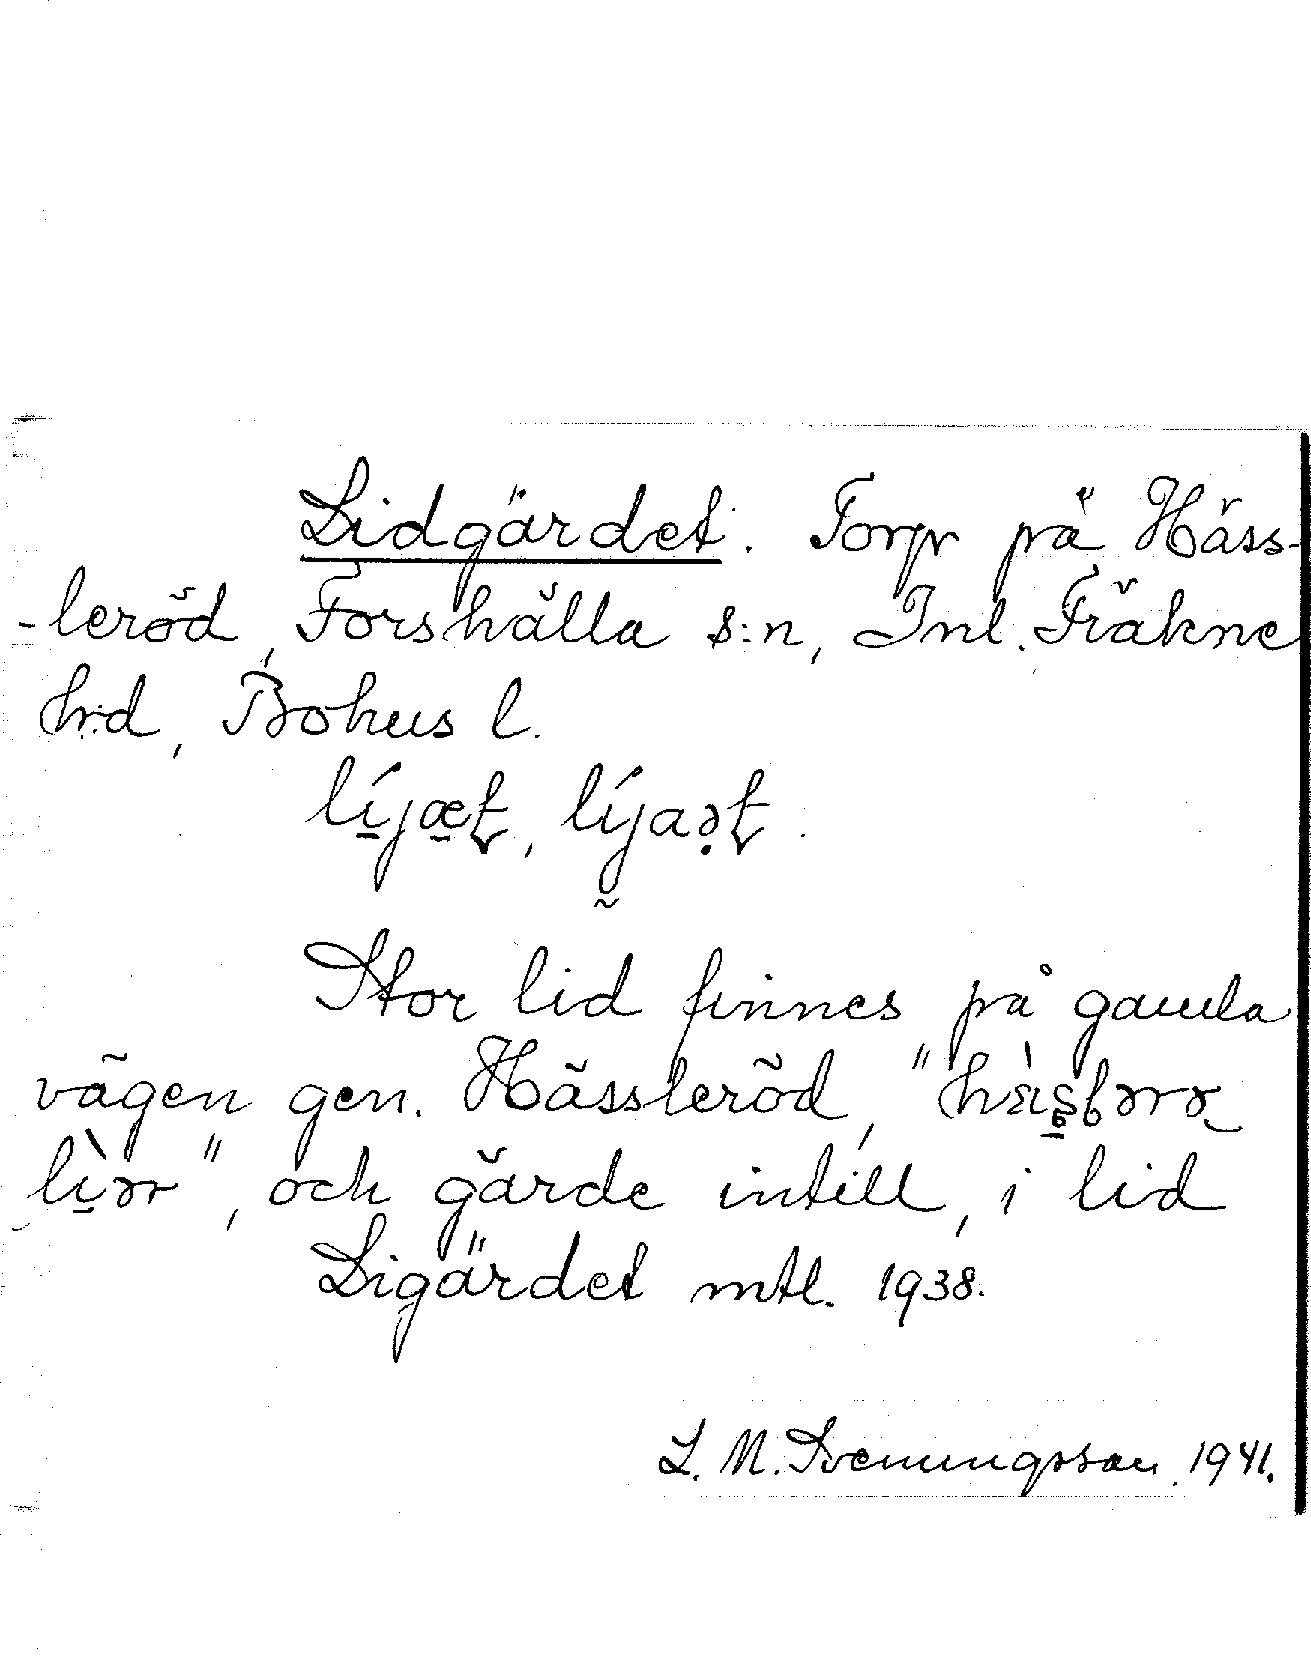 Lidgärdet. Torp på Häss-
-leröd, Forshälla s:n, Inl. Fräkne
hrd, Bohus l.
li̱´jæ̱t, li´jaət.
Stor lid finnes på gamla
vägen gen. Hässleröd, "
lì̱ər", och gärde intill, i lid
Ligärdet mtl. 1938.
L. M. Svenungsson 1941.